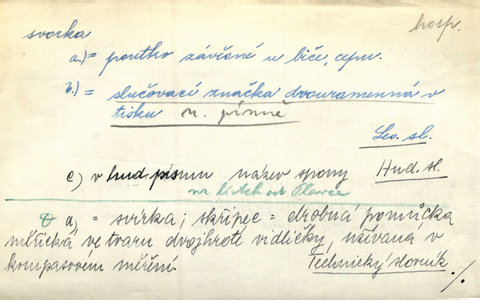 hosp.
svorka
a.) = poutko závěsné u biče, cepu.
b.) = slučovací značka dvouramenná v
tisku n. písmě
Les. sl.
c) v hud. písmu název spony Hud. sl.
na lístek od Plavce
d, = svírka; skřipec = drobná pomůcka
měřičská ve tvaru dvojhroté vidličky, užívaná v
kompasovém měření. Technický slovník
./.